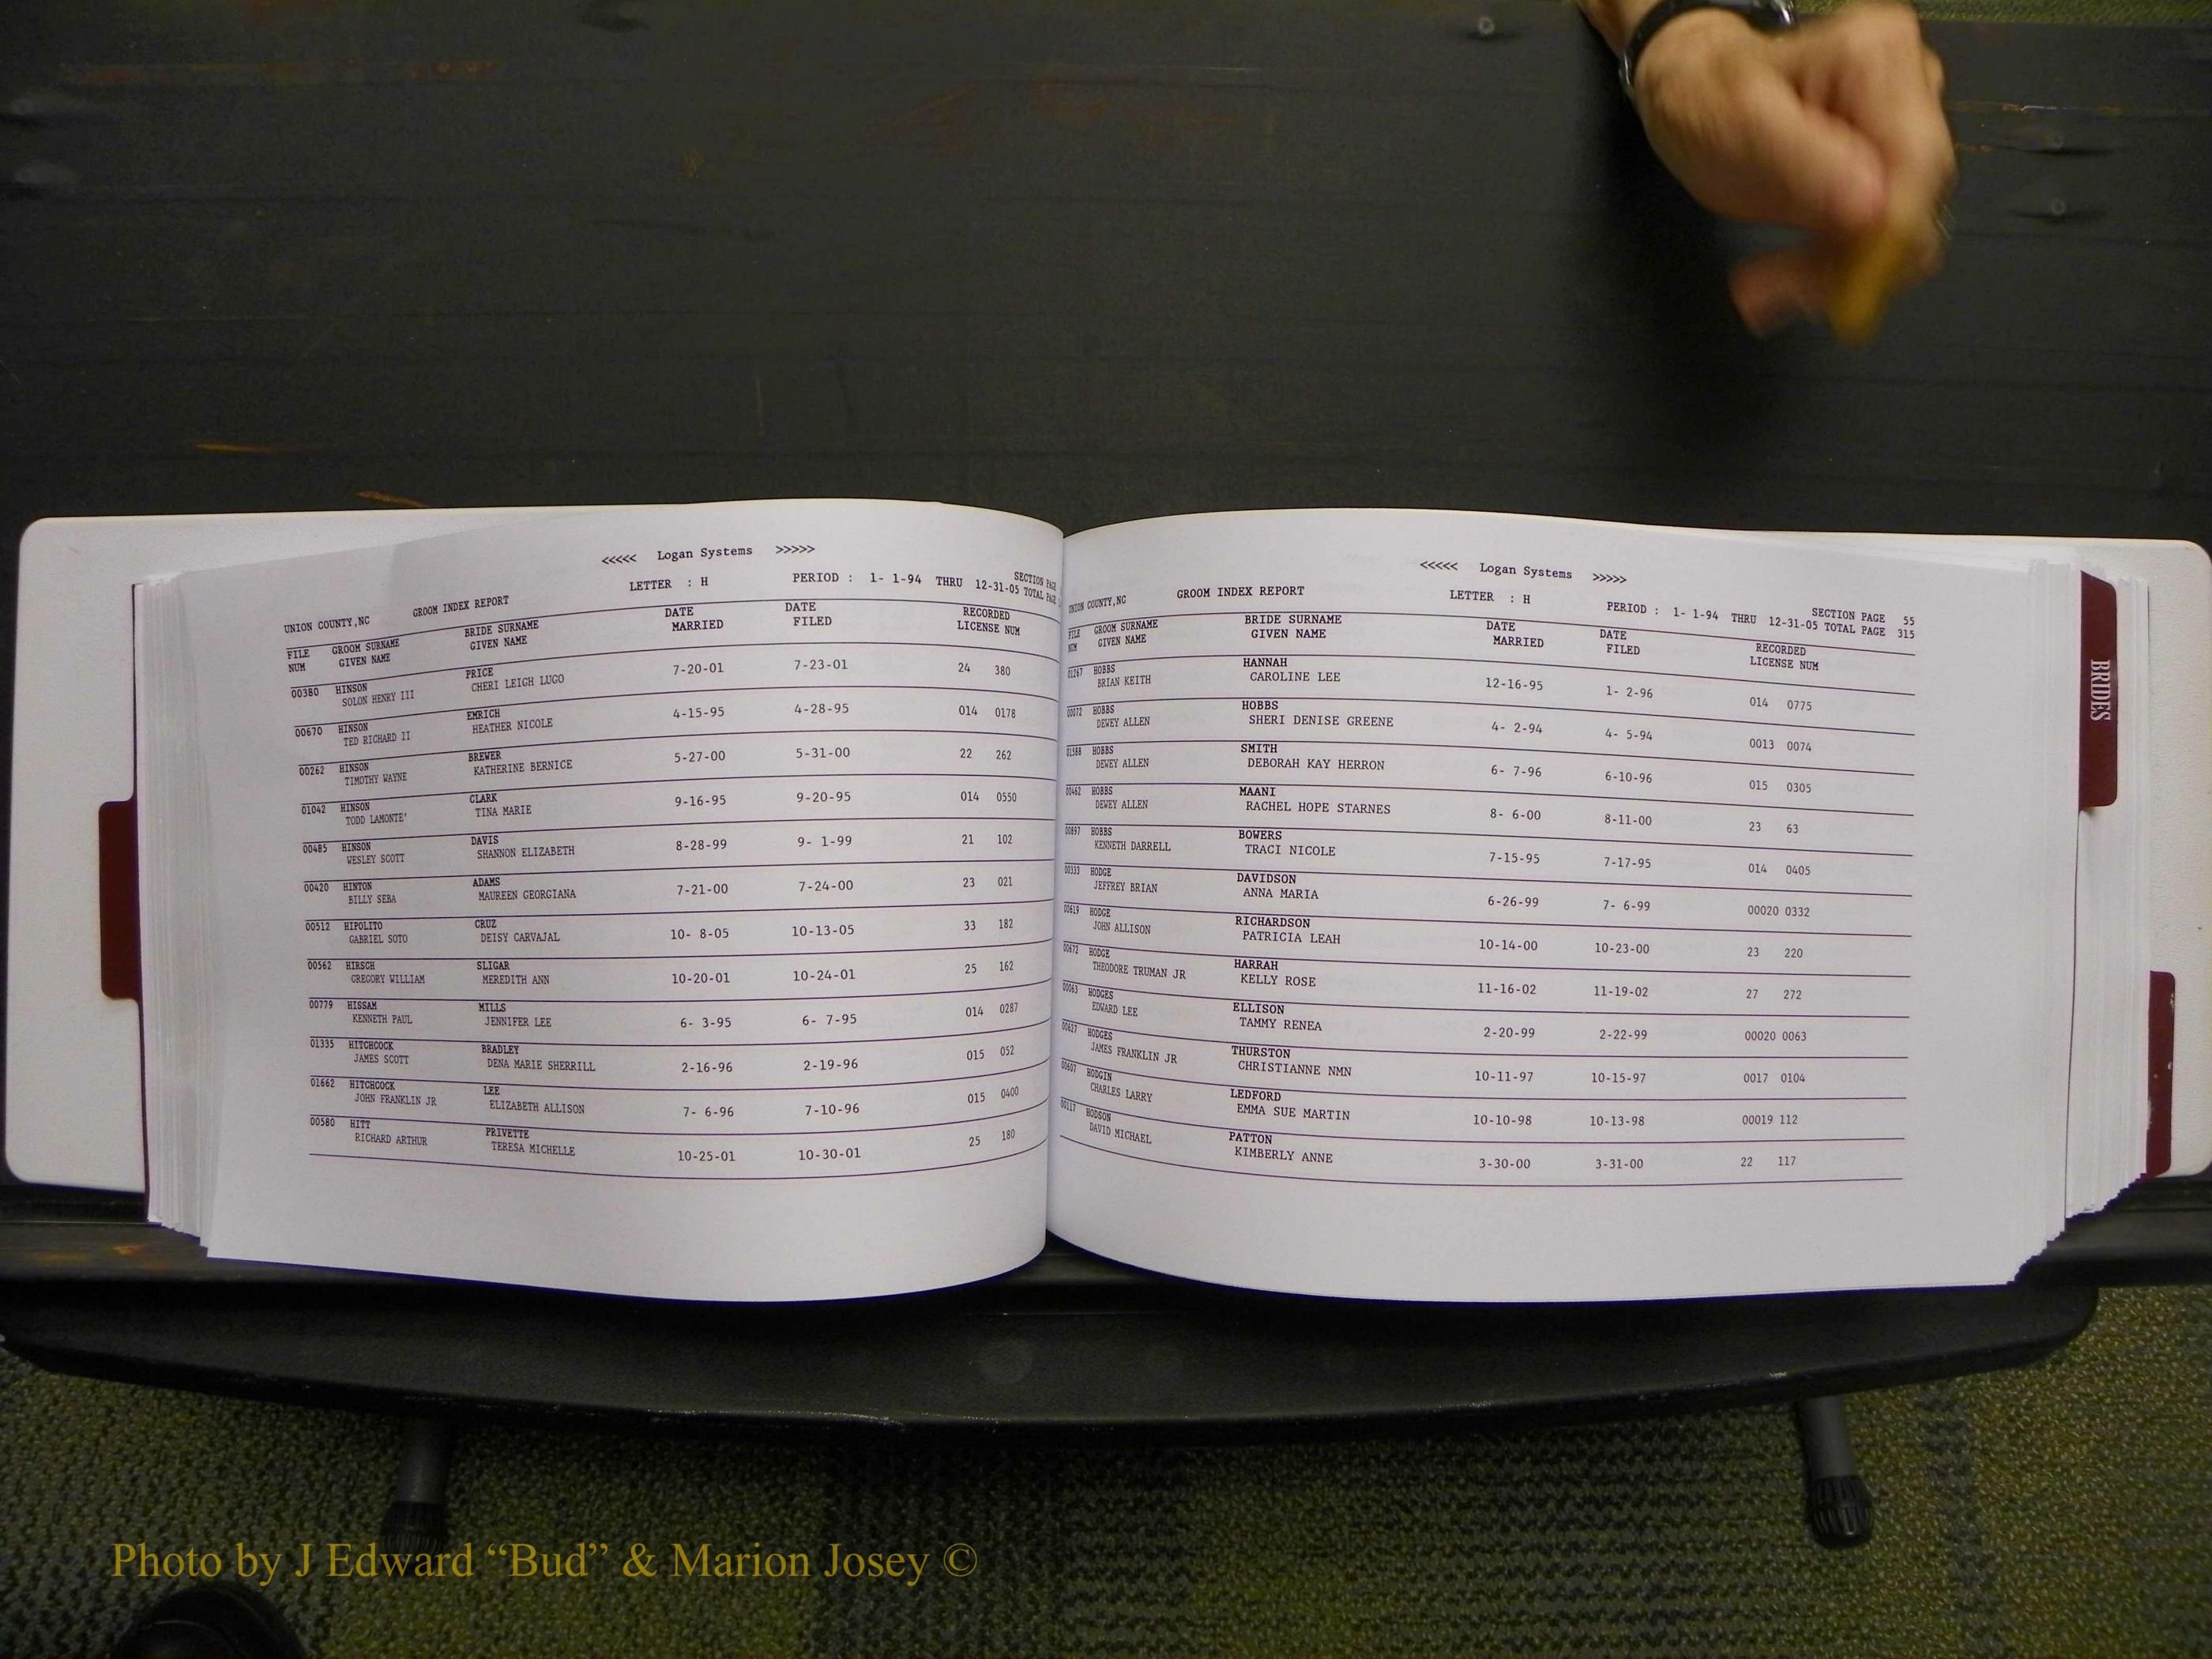 <<<<< Logan Systems >>>>>
UNION COUNTY,NC GROOM INDEX REPORT LETTER : H PERIOD : 1- 1-94 THRU 12-31-05 SECTION PAGE
TOTAL PAGE
FILE GROOM SURNAME BRIDE SURNAME DATE DATE RECORDED
NUM GIVEN NAME GIVEN NAME MARRIED FILED LICENSE NUM
00380 HINSON PRICE 7-20-01 7-23-01 24 380
SOLON HENRY III CHERI LEIGH LUGO
00670 HINSON EMRICH 4-15-95 4-28-95 014 0178
TED RICHARD II HEATHER NICOLE
00262 HINSON BREWER 5-27-00 5-31-00 22 262
TIMOTHY WAYNE KATHERINE BERNICE
01042 HINSON CLARK 9-16-95 9-20-95 014 0550
TODD LAMONTE' TINA MARIE
00485 HINSON DAVIS 8-28-99 9- 1-99 21 102
WESLEY SCOTT SHANNON ELIZABETH
00420 HINTON ADAMS 7-21-00 7-24-00 23 021
BILLY SEBA MAUREEN GEORGIANA
00512 HIPOLITO CRUZ 10- 8-05 10-13-05 33 182
GABRIEL SOTO DEISY CARVAJAL
00562 HIRSCH SLIGAR 10-20-01 10-24-01 25 162
GREGORY WILLIAM MEREDITH ANN
00779 HISSAM MILLS 6- 3-95 6- 7-95 014 0287
KENNETH PAUL JENNIFER LEE
01335 HITCHCOCK BRADLEY 2-16-96 2-19-96 015 052
JAMES SCOTT DENA MARIE SHERRILL
01662 HITCHCOCK LEE 7- 6-96 7-10-96 015 0400
JOHN FRANKLIN JR ELIZABETH ALLISON
00580 HITT PRIVETTE 10-25-01 10-30-01 25 180
RICHARD ARTHUR TERESA MICHELLE
<<<<< Logan Systems >>>>>
UNION COUNTY,NC GROOM INDEX REPORT LETTER : H PERIOD : 1- 1-94 THRU 12-31-05 SECTION PAGE 55
TOTAL PAGE 315
FILE GROOM SURNAME BRIDE SURNAME DATE DATE RECORDED
NUM GIVEN NAME GIVEN NAME MARRIED FILED LICENSE NUM
01267 HOBBS HANNAH 12-16-95 1- 2-96 014 0775
BRIAN KEITH CAROLINE LEE
00072 HOBBS HOBBS 4- 2-94 4- 5-94 0013 0074
DEWEY ALLEN SHERI DENISE GREENE
01588 HOBBS SMITH 6- 7-96 6-10-96 015 0305
DEWEY ALLEN DEBORAH KAY HERRON
00462 HOBBS MAANI 8- 6-00 8-11-00 23 63
DEWEY ALLEN RACHEL HOPE STARNES
00897 HOBBS BOWERS 7-15-95 7-17-95 014 0405
KENNETH DARRELL TRACI NICOLE
00333 HODGE DAVIDSON 6-26-99 7- 6-99 00020 0332
JEFFREY BRIAN ANNA MARIA
00619 HODGE RICHARDSON 10-14-00 10-23-00 23 220
JOHN ALLISON PATRICIA LEAH
00672 HODGE HARRAH 11-16-02 11-19-02 27 272
THEODORE TRUMAN JR KELLY ROSE
00063 HODGES ELLISON 2-20-99 2-22-99 00020 0063
EDWARD LEE TAMMY RENEA
00627 HODGES THURSTON 10-11-97 10-15-97 0017 0104
JAMES FRANKLIN JR CHRISTIANNE NMN
00607 HODGIN LEDFORD 10-10-98 10-13-98 00019 112
CHARLES LARRY EMMA SUE MARTIN
00117 HODSON PATTON 3-30-00 3-31-00 22 117
DAVID MICHAEL KIMBERLY ANNE
BRIDES
Photo by J Edward “Bud” & Marion Josey ©